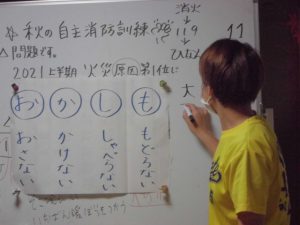 秋の自主消防訓練
消火
119
ひなん
11
問題です。
2021上半期 火災原因第1位は
大
お か し も
おさない
かけない
しゃべらない
もどらない